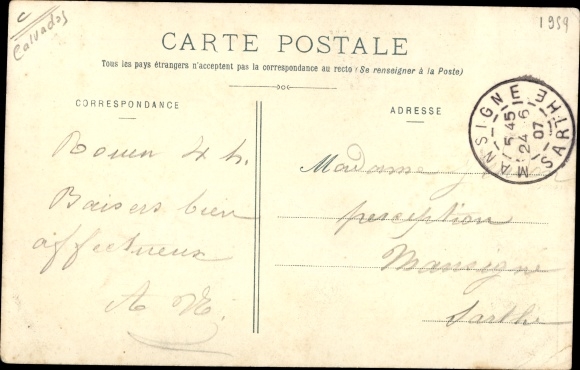 Calvados
1959
CARTE POSTALE
Tous les pays étrangers n'acceptent pas la correspondance au recto (Se renseigner à la Poste)
CORRESPONDANCE
ADRESSE
MANSIGNE SARTHE
5 45
24 - 6
07
Rouen 4 h.
Baisers bien
affectueux
Madame
perception
Mansigné
Sarthe